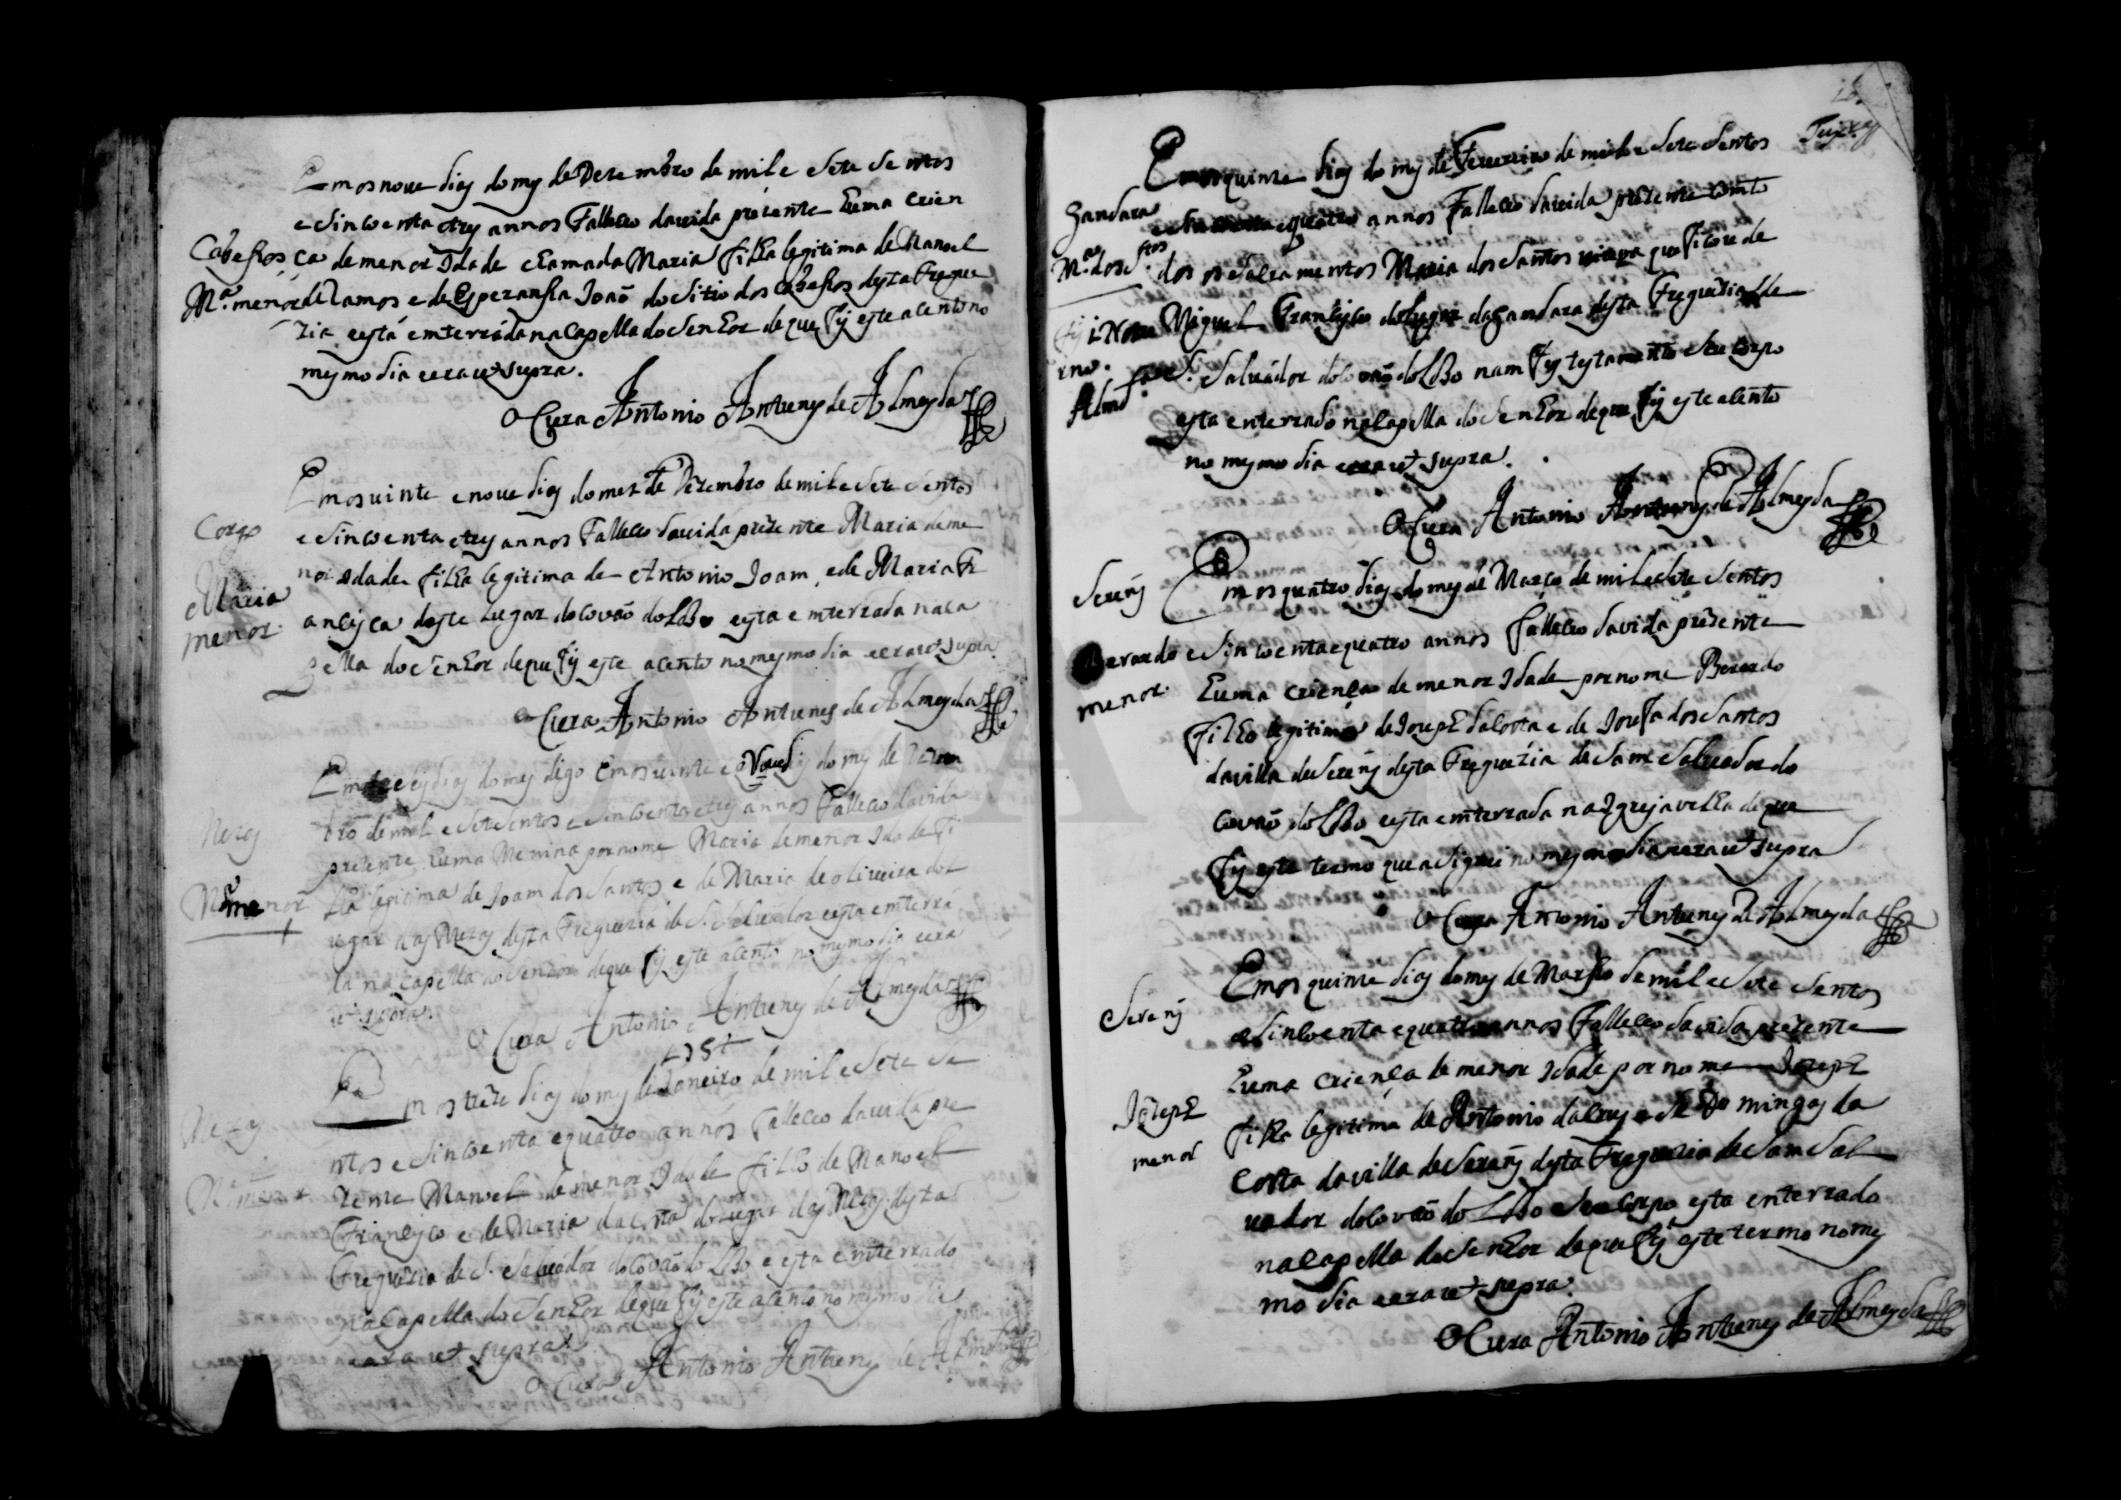 Emos noue dias do mes de Dezembro de mil e sete sentos
e sincoenta e tres annos Falleceo da uida prezente huma crien
Cabessos
ca de menor Idade chamada Maria filha legitima de Manoel
Mª. menor
de Ramos e de Esperansa Joaõ do sitio dos Cabessos desta Fregue
zia esta emterrada na capella do Senhor de que fis este acento no
mesmo dia e era ut supra.
O Cura Antonio Antunes de Almeyda
Emos uinte e noue dias do mes de Dezembro de mil e sete sentos
Corgo
e sincoenta e tres annos Falleceo da uida prezente Maria de me
nor Idade filha legitima de Antonio Joam, e de Maria Fr
Maria
menor.
ancisca deste Lugar do Couão do Lobo esta emterrada na ca
pella do Senhor de que fis este acento no mesmo dia e era ut supra.
O Cura Antonio Antunes de Almeyda
dias do mes digo Emos uinte e noue dias do mes de Dezem
bro de mil e sete sentos e sincoenta e tres annos Falleceo da uida
Mezas
prezente huma Menina por nome Maria de menor Idade fi
Mª. menor
lha legitima de Joam dos Santos, e de Maria de oliueira do L
ugar das Mezas desta Freguezia de S. Saluador esta emterra
da na capella do Senhor de que fis este acento no mesmo dia e era
ut supra.
O Cura Antonio Antunes de Almeyda
1754
Emos treze dias do mes de Janeiro de mil e sete se
Mezas
ntos e sincoenta e quatro annos Falleceo da uida pre
Mel menor
zente Manoel de menor Idade filho de Manoel
Francisco e de Maria da Costa do Lugar das Mezas desta
Freguezia de S. Saluador do Couão do Lobo e esta emterrado
na capella do Senhor de que fis este acento no mesmo dia
e era ut supra.
O Cura Antonio Antunes de Almeyda
Emos quinze dias do mes de Feuereiro de mil e sete sentos
Gandara
e sincoenta e quatro annos Falleceo da uida prezente com to
Mª. dos Stos
dos os sacramentos Maria dos Santos uiuua que ficou de
Miguel Francisco do lugar da Gandara desta Freguezia de
fis i Nota
rno.
S. Saluador do Couão do Lobo nam fes testamento seu corpo
Almdª
esta enterrado na capella do Senhor de que fis este acento
no mesmo dia e era ut supra.
O Cura Antonio Antunes de Almeyda
Emos quatro dias do mes de Março de mil e sete sentos
Sereñ
Berardo
e sincoenta e quatro annos falleceo da uida prezente
menor.
huma criença de menor Idade por nome Berardo
filho legitimo de Jozeph da Costa e de Jozefa dos Santos
da uilla de Sereñ desta Freguezia de Sam Saluador do
Couão do Lobo esta emterrada na Igreja uelha de que
fis este termo que asignei no mesmo dia e era ut supra
O Cura Antonio Antunes de Almeyda
Emos quinze dias do mes de Marso de mil e sete sentos
Sereñ
e sincoenta e quatro annos Falleceo da uida prezente
huma criença de menor Idade por nome Jozeph
Jozeph
menor
filho legitimo de Antonio da Crus e de Domingas da
Costa da uilla de Sereñ desta Freguezia de Sam Sal
uador do Couão do Lobo seu corpo esta enterrado
na capella do Senhor de que fis este termo no mes
mo dia e era ut supra.
O Cura Antonio Antunes de Almeyda